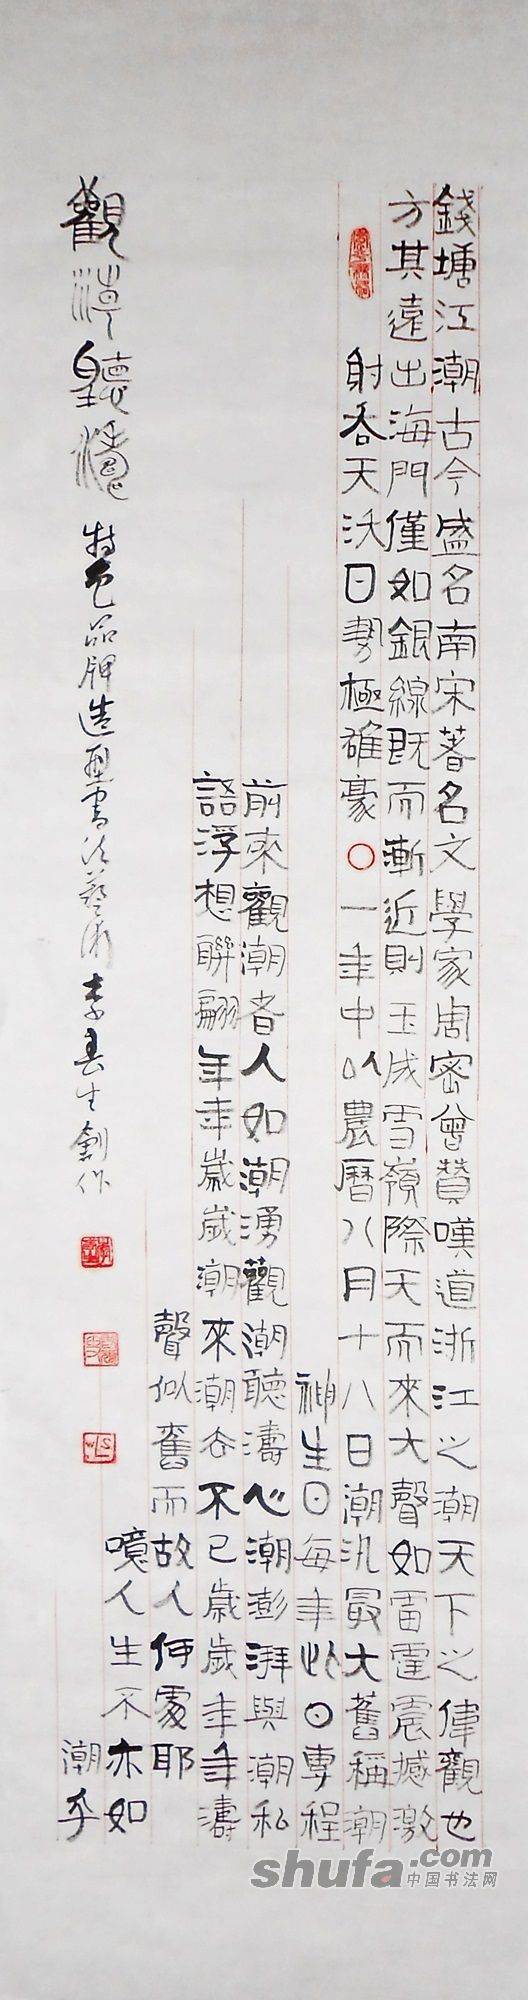 錢塘江潮古今盛名南宋著名文學家周密曾贊嘆道浙江之潮天下之偉觀也
方其遠出海門僅如銀線既而漸近則玉成雪嶺際天而來大聲如雷霆震撼激
射吞天沃日勢極雄豪〇一年中以農曆八月十八日潮汛最大舊稱潮
神生日每年此日專程
前來觀潮者人如潮湧觀潮聽濤心潮澎湃與潮私
語浮想聯翩年年歲歲潮來潮去不已歲歲年年濤
聲似舊而故人何處耶
噫人生不亦如
潮乎
觀濤聽濤
特色品牌造型書法藝術李春生創作
shufa.com
中国书法网